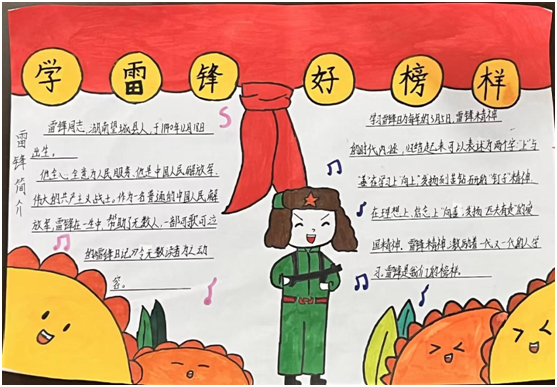 学雷锋好榜样
雷锋简介
雷锋同志,湖南望城县人,于1940年12月18日
出生。
他全心全意为人民服务,他是中国人民解放军
伟大的共产主义战士。作为一名普通的中国人民解
放军,雷锋在一生中帮助了无数人,一部可歌可泣
的雷锋日记 令无数读者为之动
容。
学习雷锋日为每年的3月5日,雷锋精神
的时代内涵,归结起来可以表述为两个字"上"与
"善"在学习上"向上"发扬刻苦钻研的"钉子"精神
在理想上、信念上"向善"发扬 的爱
国精神,雷锋精神,激励着一代又一代的人学
习,雷锋是我们的榜样。